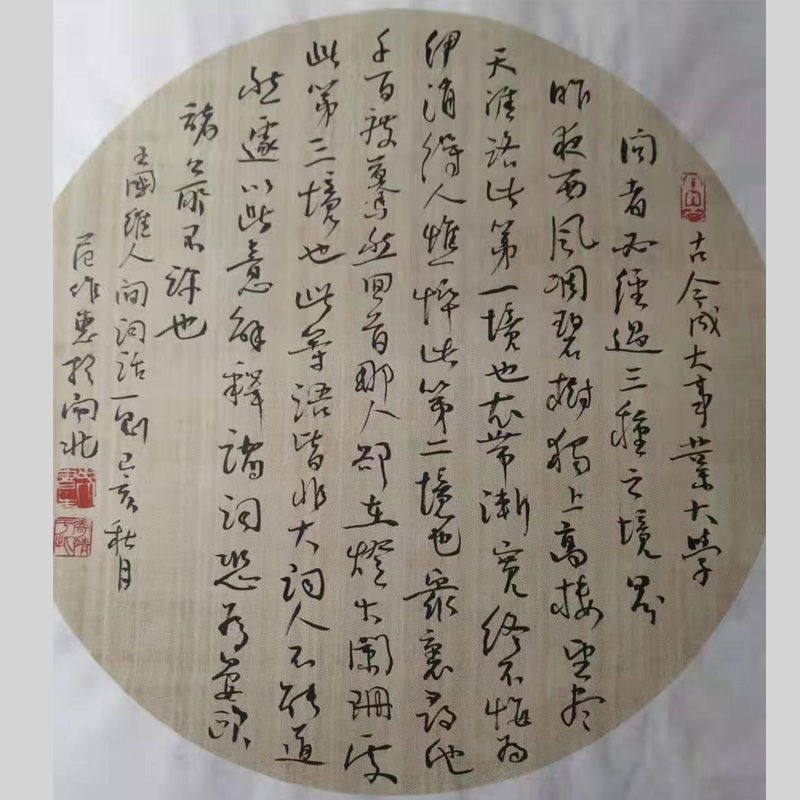 古今成大事業大學
问者必经過三種之境界
昨夜西風凋碧樹獨上高楼望尽
天涯路此第一境也衣带渐宽终不悔为
伊消得人憔悴此第二境也眾裏尋他
千百度蓦然回首那人却在燈火闌珊处
此第三境也此等語皆非大詞人不能道
然遽以此意解釋諸词恐为晏欧
諸公所不許也
王國維人间词话一则己亥秋月